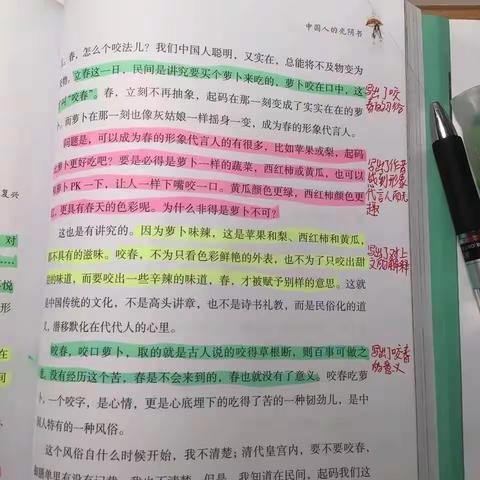 中国人的光阴书
，春，怎么个咬法儿？我们中国人聪明，又实在，总能将不及物变为
物，立春这一日，民间是讲究要买个萝卜来吃的，萝卜咬在口中，这
叫“咬春”。春，立刻不再抽象，起码在那一刻变成了实实在在的萝
，而萝卜在那一刻也像灰姑娘一样摇身一变，成为春的形象代言人。
问题是，可以成为春的形象代言人的有很多，比如苹果或梨，起码
萝卜更好吃吧？要是必得是萝卜一样的蔬菜，西红柿或黄瓜，也可以
萝卜PK一下，让人一样下嘴咬一口。黄瓜颜色更绿，西红柿颜色更
，更具有春天的色彩呢。为什么非得是萝卜不可？
这也是有讲究的。因为萝卜味辣，这是苹果和梨、西红柿和黄瓜，
不具有的滋味。咬春，不为只看色彩鲜艳的外表，也不为了只咬出甜
的味道，而要咬出一些辛辣的味道，春，才被赋予别样的意思。这就
是中国传统的文化，不是高头讲章，也不是诗书礼教，而是民俗化的道
，潜移默化在代代人的心里。
咬春，咬口萝卜，取的就是古人说的咬得草根断，则百事可做之
，没有经历这个苦，春是不会来到的，春也就没有了意义。咬春吃萝
，一个咬字，是心情，更是心底埋下的吃得了苦的一种韧劲儿，是中
人特有的一种风俗。
这个风俗自什么时候开始，我不清楚；清代皇宫内，要不要咬春，
但是，我知道在民间，起码我们这
写出了咬
写出了作者
感到形象
代言人而无
趣
写出了对上
文的解释
写出了咬春
的意义
复兴
对
悦
形
在
间